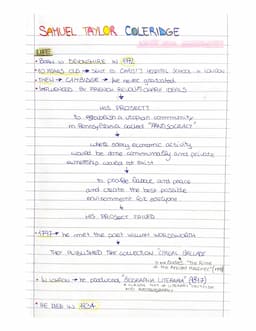 SAMUEL TAYLOR COLERIDGE
LIFE
• BORN IN DEVONSHIRE IN 1772
• 10 YEARS OLD → SENT TO CHRIST'S HOSPITAL SCHOOL in LONDON
• THEN → CAMBRIDGE → he never graduated
• INFLUENCED BY FRENCH REVOLUTIONARY IDEALS
HIS PROJECT?
to establish a utopian community
in Pennsylvania called "PANTISOCRACY"
where every economic activity
would be done communally and private
ownership would not exist
to provide labour and peace
and create the best possible
environment for everyone
HIS PROJECT FAILED
• 1797 → he met the poet WILLIAM WORDSWORTH
THEY PUBLISHED THE COLLECTION "LYRICAL BALLADS"
"The Rime of the Ancient Mariner"
• IN LONDON → he produced "BIOGRAPHIA LITERARIA" (1817)
and AUTOBIOGRAPHY
• HE DIED IN 1834